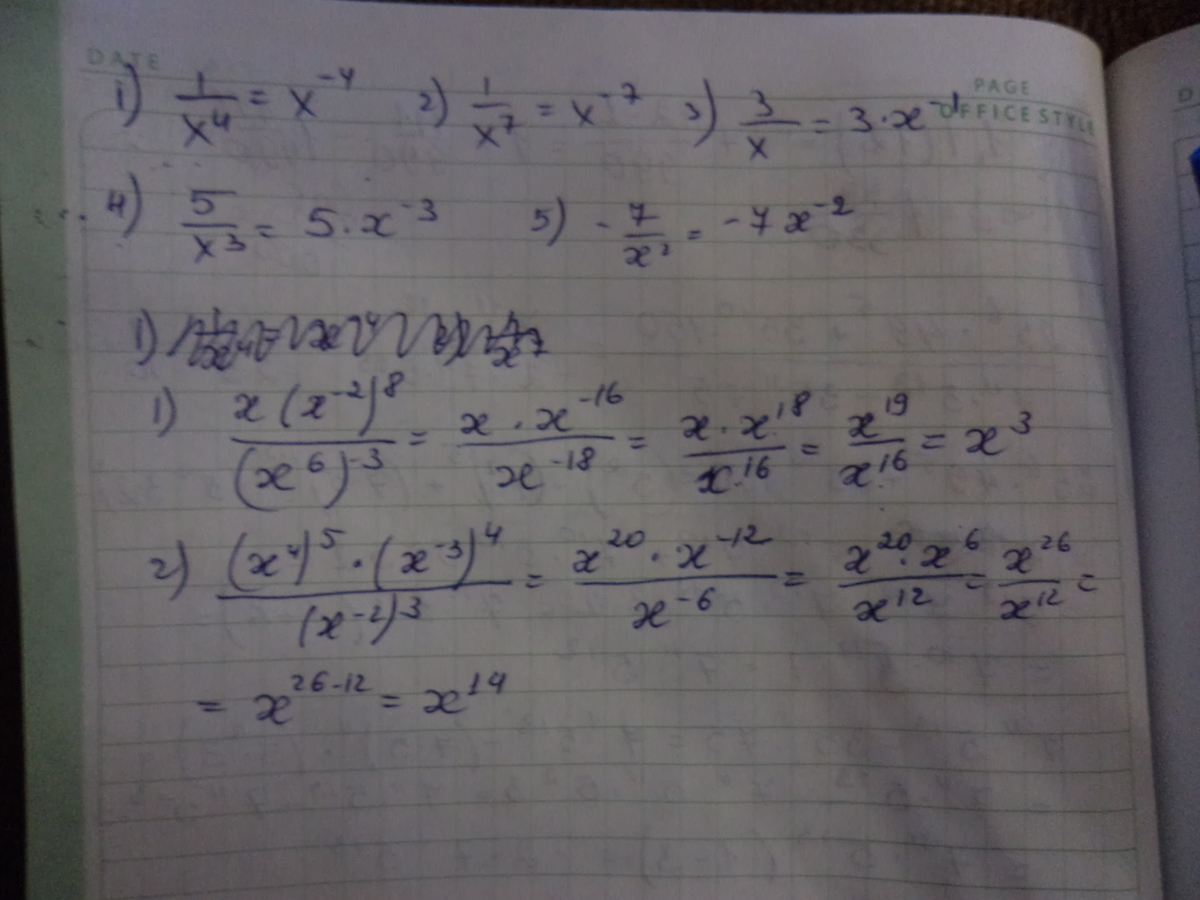 DATE
PAGE
OFFICE STYLE
1) 1/x⁴ = x⁻⁴ 2) 1/x⁷ = x⁻⁷ 3) 3/x = 3·x⁻¹
4) 5/x³ = 5·x⁻³ 5) -7/x² = -7x⁻²
1)
1) x(x⁻²)⁸/(x⁶)⁻³ = x·x⁻¹⁶/x⁻¹⁸ = x·x¹⁸/x¹⁶ = x¹⁹/x¹⁶ = x³
2) (x⁴)⁵·(x⁻³)⁴/(x⁻²)³ = x²⁰·x⁻¹²/x⁻⁶ = x²⁰·x⁶/x¹² = x²⁶/x¹² =
= x²⁶⁻¹² = x¹⁴